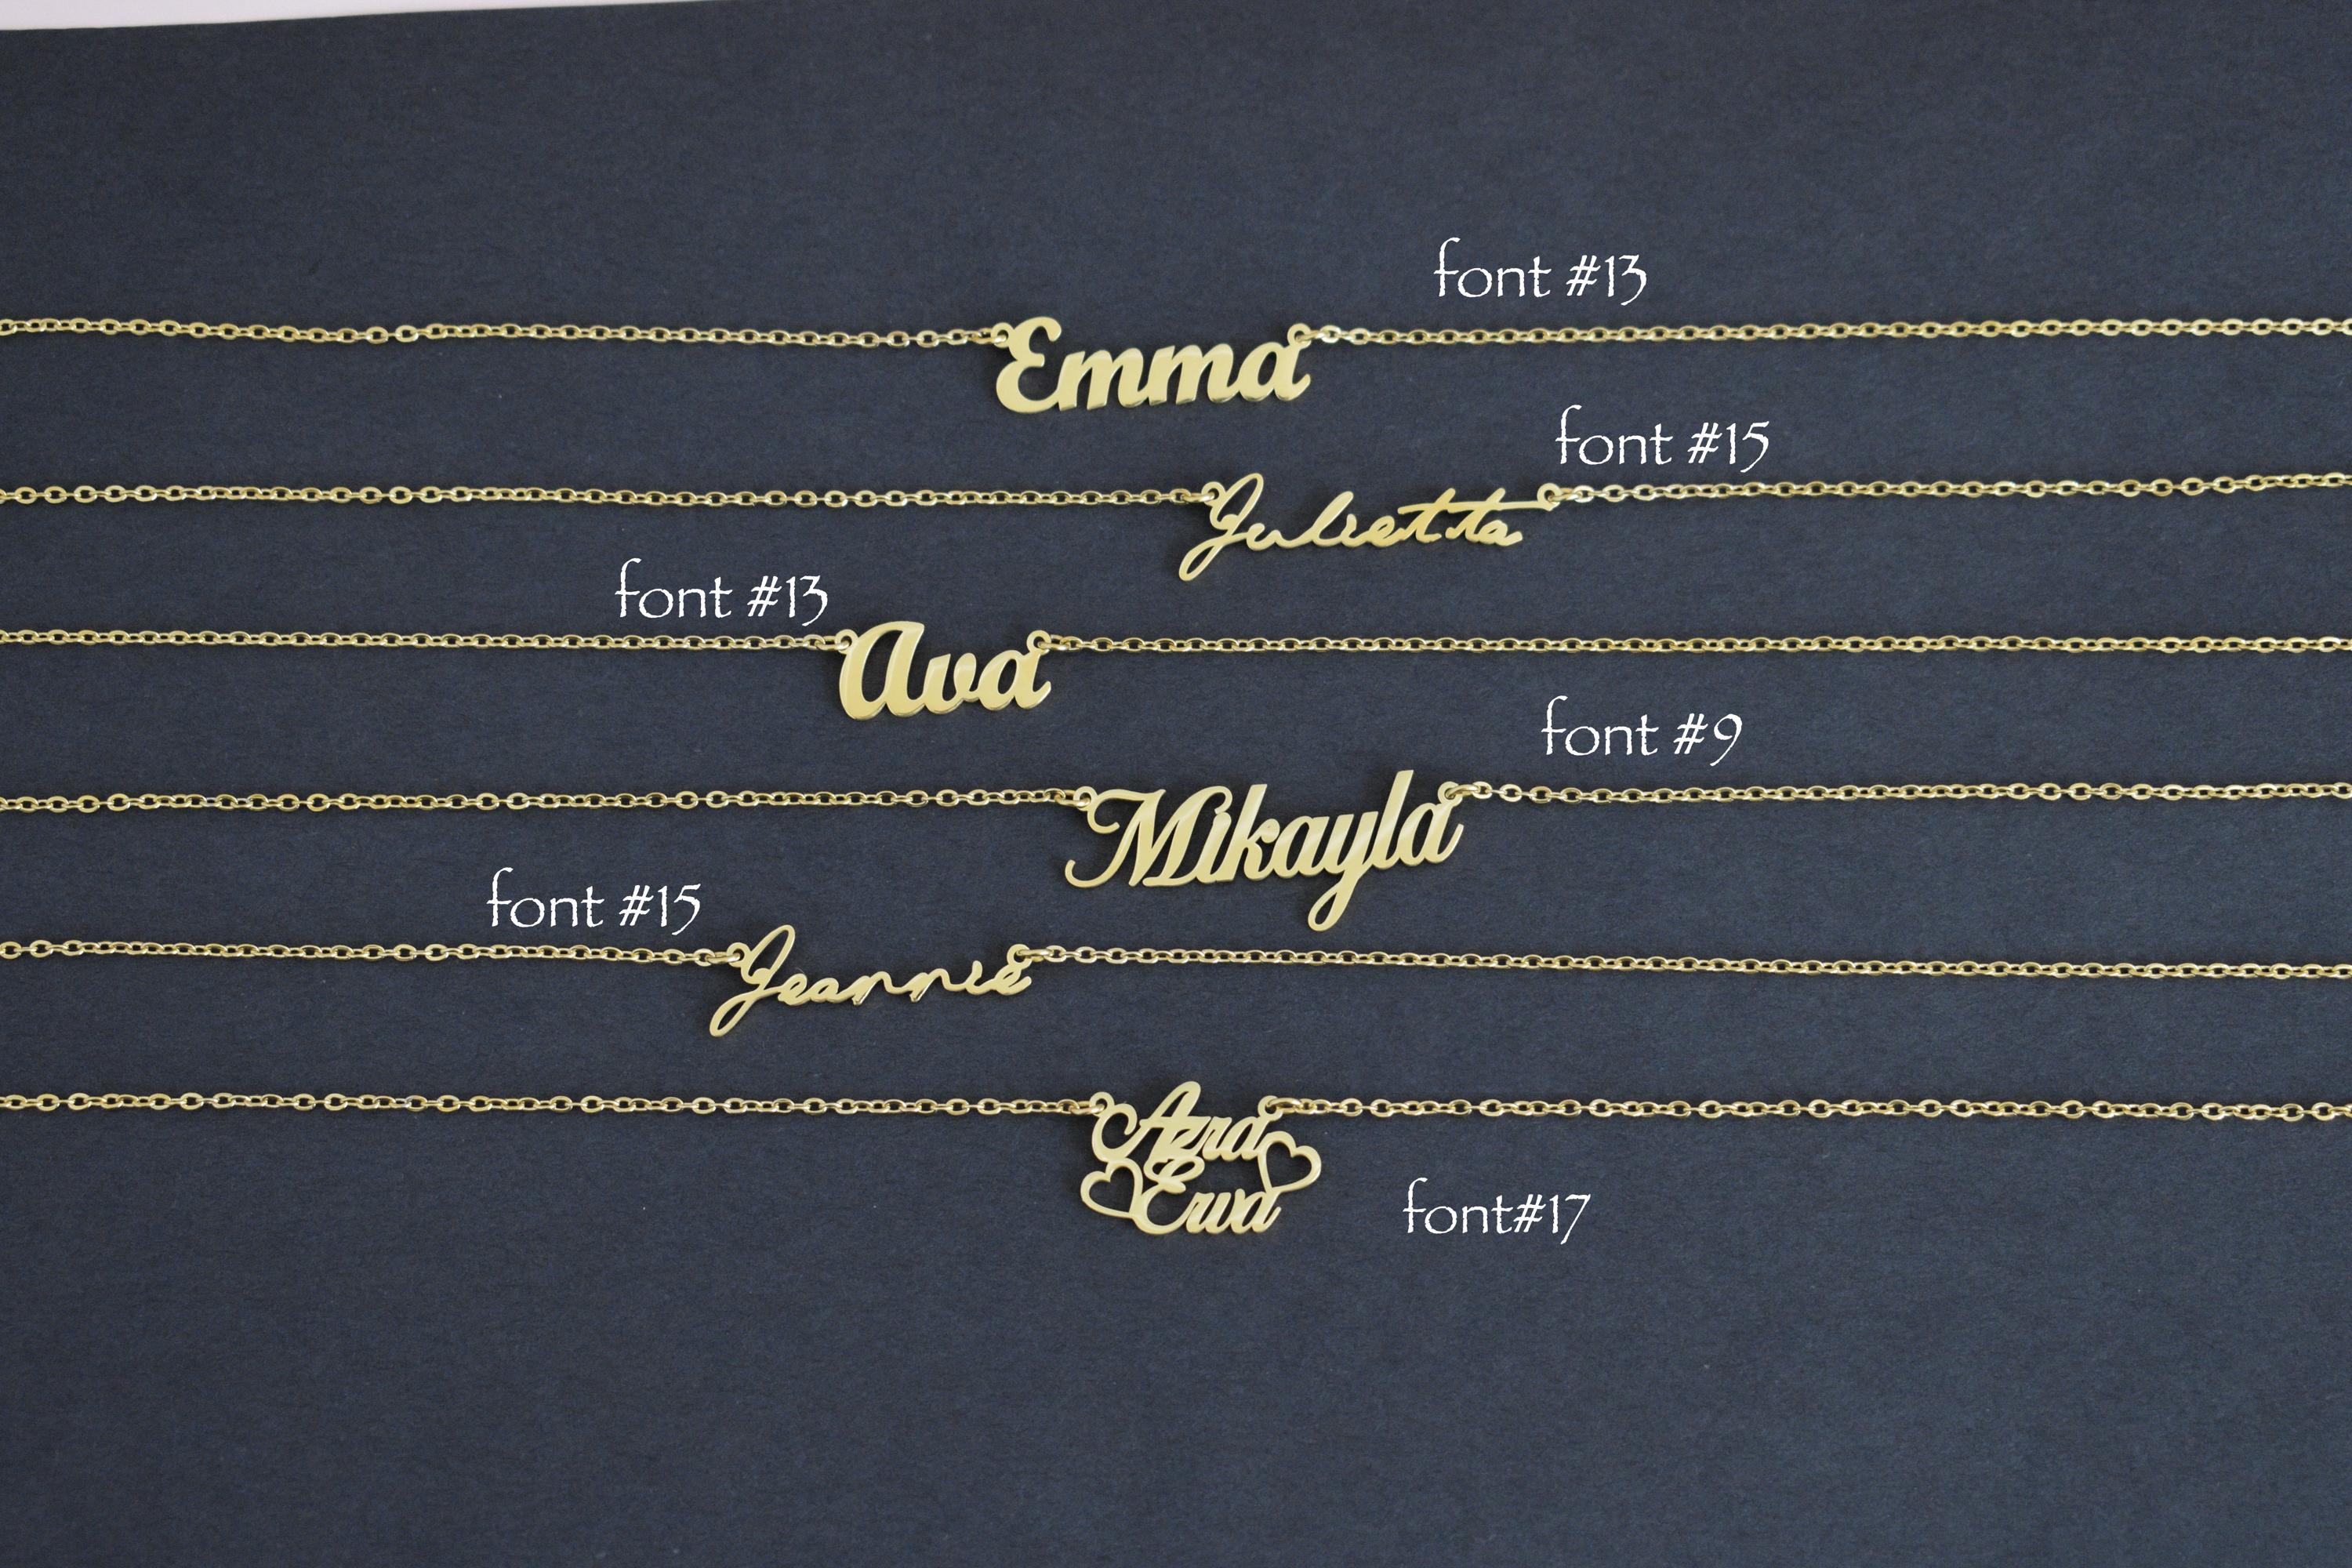 font #13
Emma
font #15
Julietta
font #13
Ava
font #9
Mikayla
font #15
Jeannie
Azra
Erva
font#17